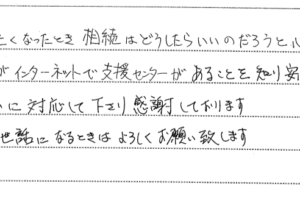 たくなったとき 相続はどうしたらいいのだろうと心
がインターネットで支援センターがあることを知り安
いに対応して下さり 感謝しております
世話になるときは よろしくお願い致します